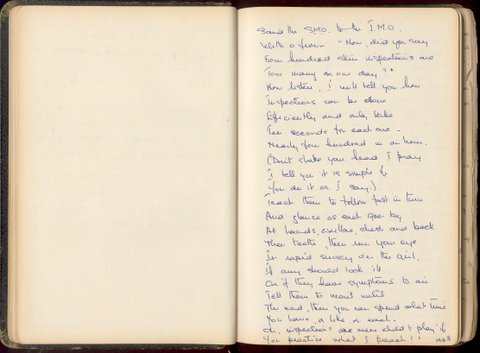 Said the S.M.O. to the J.M.O.
With a frown "Now, did you say
Four hundred skin inspections are
Too many in one day?"
Now listen, I will tell you how
Inspections can be done
Efficiently and only take
Ten seconds for each one -
Nearly four hundred in an hour.
(Don't shake your head I pray
I tell you it is simple if
You do it as I say.)
Teach them to follow fast in turn
And glance as each goes by
At hands, axillae, chest and back
Then teeth, then run your eye
In rapid survey o'er the girl,
If any should look ill
Or if they have symptoms to air
Tell them to wait until
The end, then you can spend what time
You have, or like, on each.
inspections are mere child's play if
You practice what I preach!! 1943